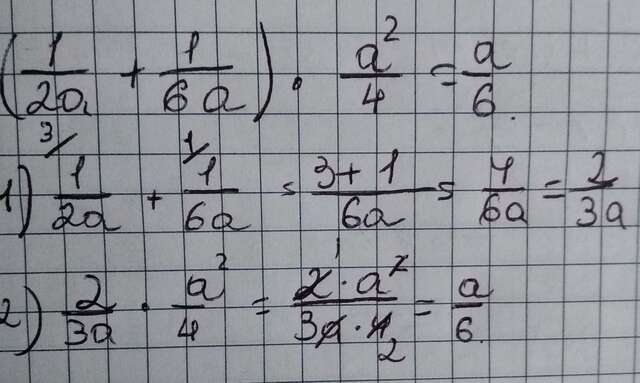 (1/2a + 1/6a) · a²/4 = a/6.
1) ³/1/2a + ¹/1/6a = 3+1/6a = 4/6a = 2/3a
2) 2/3a · a²/4 = 2¹·a²/3a·4₂ = a/6.